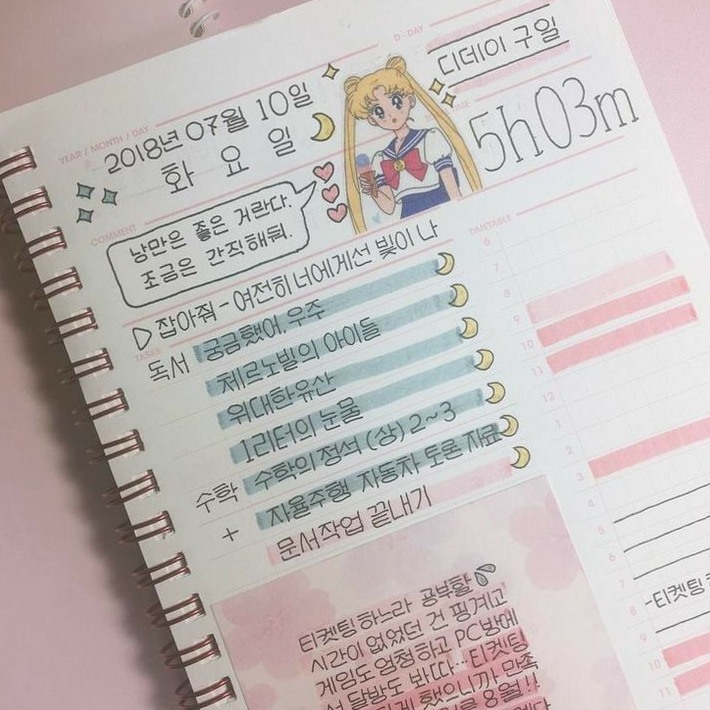 D-DAY
디데이 구일
YEAR / MONTH / DAY
2018년 07월 10일
화 요 일
5h 03m
COMMENT
낭만은 좋은 거란다.
조금은 간직해둬.
▷ 잡아줘 - 여전히 너에게선 빛이 나
TASKS
독서 궁금했어, 우주
체르노빌의 아이들
위대한유산
1리터의 눈물
수학 수학의 정석 (상) 2~3
+ 자율주행 자동차 토론 자료
문서작업 끝내기
TIMETABLE
6
7
8
9
10
11
12
1
2
3
4
5
6
7
8
9
10
11
-티켓팅
티켓팅 하느라 공부할
시간이 없었던 건 핑계고
게임도 엄청하고 PC방에
달방도 봐따... 티켓팅
했으니까 만족
8월!!